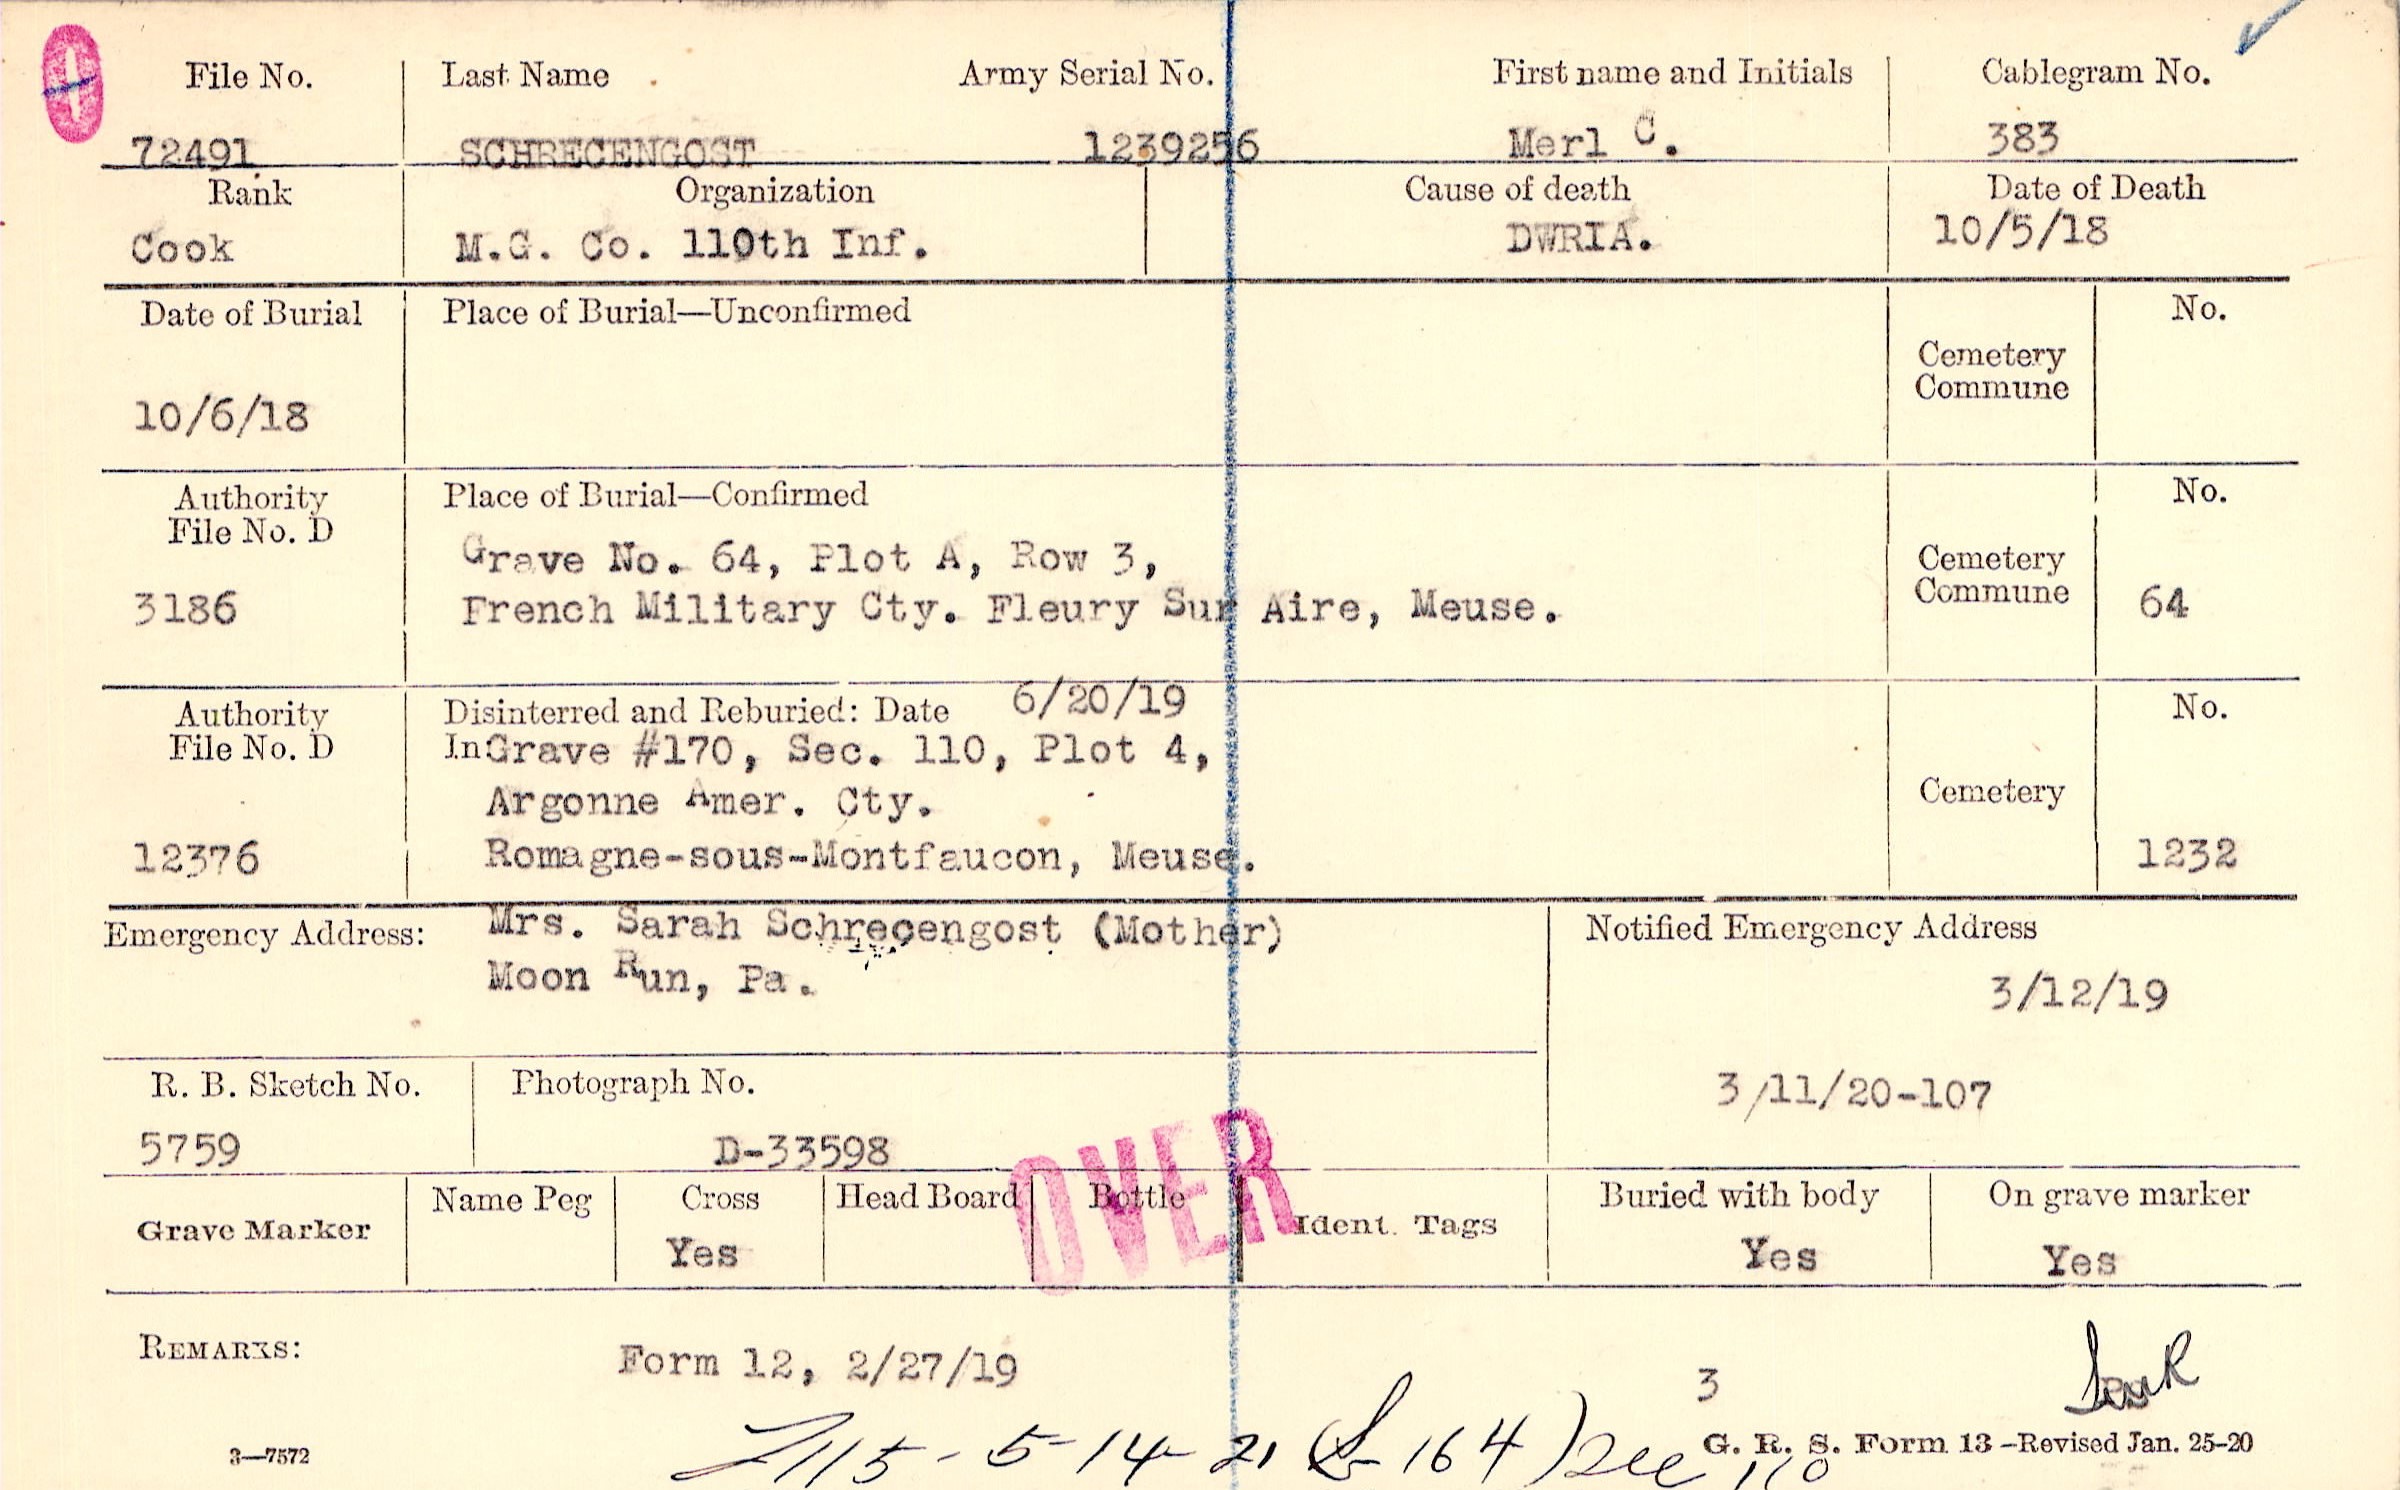 File No. Last Name Army Serial No. First name and Initials Cablegram No.
72491 SCHRECENGOST 1239256 Merl C. 383
Rank Organization Cause of death Date of Death
Cook M.G. Co. 110th Inf. DWRIA. 10/5/18
Date of Burial Place of Burial—Unconfirmed No.
Cemetery
Commune
10/6/18
Authority Place of Burial—Confirmed No.
File No. D
Grave No. 64, Plot A, Row 3, Cemetery
3186 French Military Cty. Fleury Sur Aire, Meuse. Commune 64
Authority Disinterred and Reburied: Date 6/20/19 No.
File No. D In Grave #170, Sec. 110, Plot 4,
Argonne Amer. Cty. Cemetery
12376 Romagne-sous-Montfaucon, Meuse. 1232
Emergency Address: Mrs. Sarah Schrecengost (Mother) Notified Emergency Address
Moon Run, Pa. 3/12/19
R. B. Sketch No. Photograph No. 3/11/20-107
5759 D-33598
OVER
Grave Marker Name Peg Cross Head Board Bottle Ident. Tags Buried with body On grave marker
Yes Yes Yes
REMARKS: Form 12, 2/27/19 3
115 - 5-14-21 164) See 110
3—7572 G. R. S. Form 13-Revised Jan. 25-20